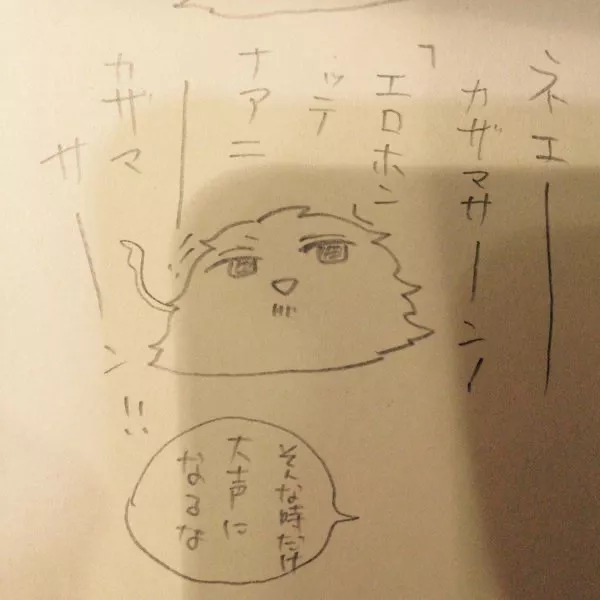 ネエー
カザマサーン!
「エロホン」
ッテ
ナアニー
カザマ
サーン!!
そんな時だけ
大声に
なるな